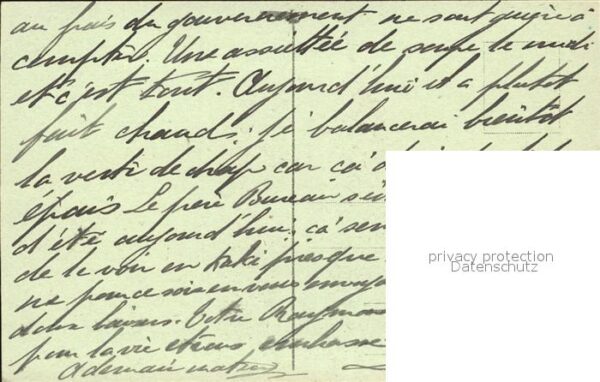 au frais du gouvernement ne sont guère à
compter. Une assiettée de soupe le midi
et c'est tout. Aujourd'hui il a plutôt
fait chaud; je balancerai bientôt
la veste de drap car ça
épais Le père Bureau
d'été aujourd'hui; ça
de le voir en kaki presque
ne pense
deux baisers. Votre Raymond
pour la vie et vous embrasse
A demain matin
privacy protection
Datenschutz